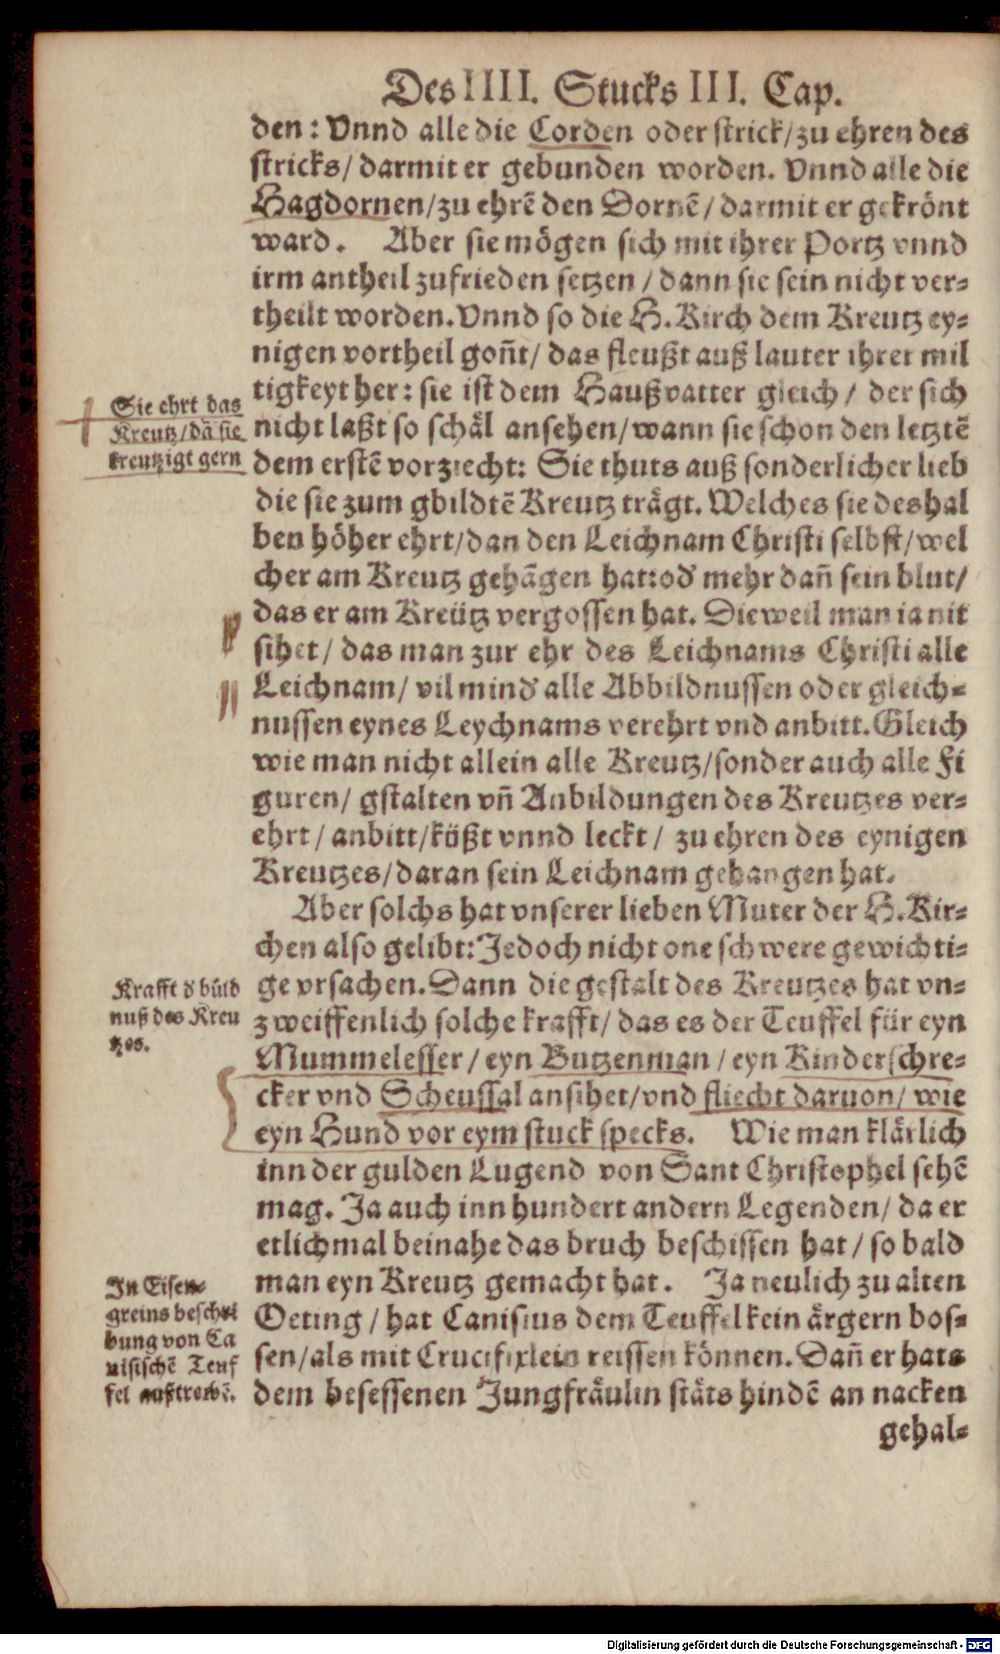 Des IIII. Stucks III. Cap.
den: Vnnd alle die Corden oder strick/zu ehren des
stricks/ darmit er gebunden worden. Vnnd alle die
Hagdornen/zu ehrē den Dornē/ darmit er gekrönt
ward. Aber sie mögen sich mit ihrer Portz vnnd
irm antheil zufrieden setzen/ dann sie sein nicht ver-
theilt worden. Vnnd so die H. Kirch dem Kreutz ey-
nigen vortheil gon̄t/ das fleußt auß lauter ihrer mil
tigkeyt her: sie ist dem Haußvatter gleich/ der sich
nicht laßt so schäl ansehen/wann sie schon den letztē
dem erstē vorziecht: Sie thuts auß sonderlicher lieb
die sie zum gbildtē Kreutz trägt. Welches sie deshal
ben höher ehrt/dan den Leichnam Christi selbst/wel
cher am Kreutz gehāgen hat: od' mehr dan̄ sein blut/
das er am Kreütz vergossen hat. Dieweil man ia nit
sihet/ das man zur ehr des Leichnams Christi alle
Leichnam/ vil mind' alle Abbildnussen oder gleich-
nussen eynes Leychnams verehrt vnd anbitt. Gleich
wie man nicht allein alle Kreutz/sonder auch alle Fi
guren/ gstalten vn̄ Anbildungen des Kreutzes ver-
ehrt/ anbitt/küßt vnnd leckt/ zu ehren des eynigen
Kreutzes/daran sein Leichnam gehangen hat.
Sie ehrt das
Kreutz/dā sie
kreutzigt gern
Aber solchs hat vnserer lieben Muter der H. Kir-
chen also gelibt: Jedoch nicht one schwere gewichti-
ge vrsachen. Dann die gestalt des Kreutzes hat vn-
zweiffenlich solche krafft/ das es der Teuffel für eyn
Mummelesser/ eyn Butzenman/ eyn Kinderschre-
cker vnd Scheussal ansihet/vnd fliecht daruon/ wie
eyn Hund vor eym stuck specks. Wie man klärlich
inn der gulden Lugend von Sant Christophel sehē
mag. Ja auch inn hundert andern Legenden/ da er
etlichmal beinahe das bruch beschissen hat/ so bald
man eyn Kreutz gemacht hat. Ja neulich zu alten
Oeting/ hat Canisius dem Teuffel kein ärgern bos-
sen/als mit Crucifixlein reissen können. Dan̄ er hats
dem besessenen Jungfräulin stäts hindē an nacken
gehal-
Krafft d' büld
nuß des Kreu
tzes.
In Eisen-
greins beschrei
bung von Ca
nisischē Teuf
fel außtreibē.
Digitalisierung gefördert durch die Deutsche Forschungsgemeinschaft - DFG